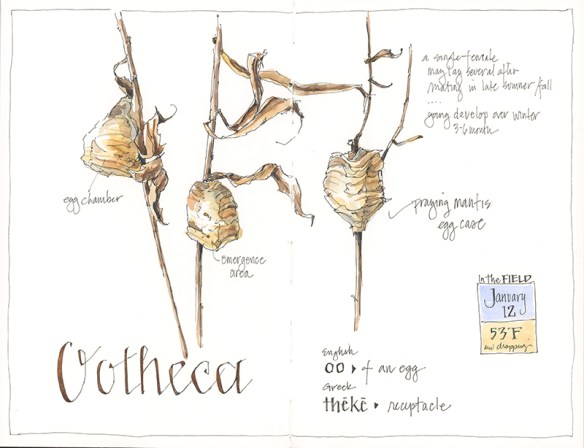 a single female
may lay several after
mating in late summer/fall
....
young develop over winter
3-6 month
egg chamber
praying mantis
egg case
emergence
area
in the FIELD
January
12
53°F
and dropping
Ootheca
English
oo ▸ of an egg
Greek
thēkē ▸ receptacle